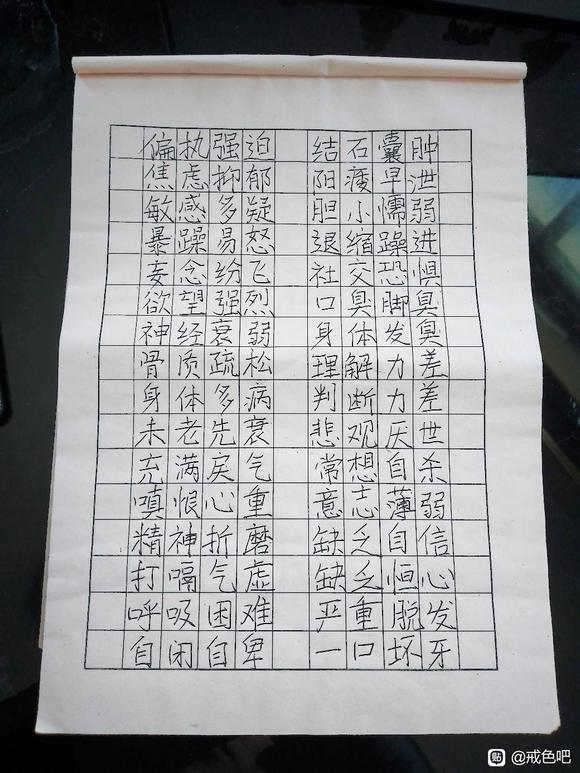 偏执强迫 结石囊肿
焦虑抑郁 阳痿早泄
敏感多疑 胆小懦弱
暴躁易怒 退缩躁进
妄念纷飞 社交恐惧
欲望强烈 口臭脚臭
神经衰弱 身体发臭
骨质疏松 理解力差
身体多病 判断力差
未老先衰 悲观厌世
充满戾气 常想自杀
嗔恨心重 意志薄弱
精神折磨 缺乏自信
打嗝气虚 缺乏恒心
呼吸困难 严重脱发
自闭自卑 一口坏牙
贴 @戒色吧